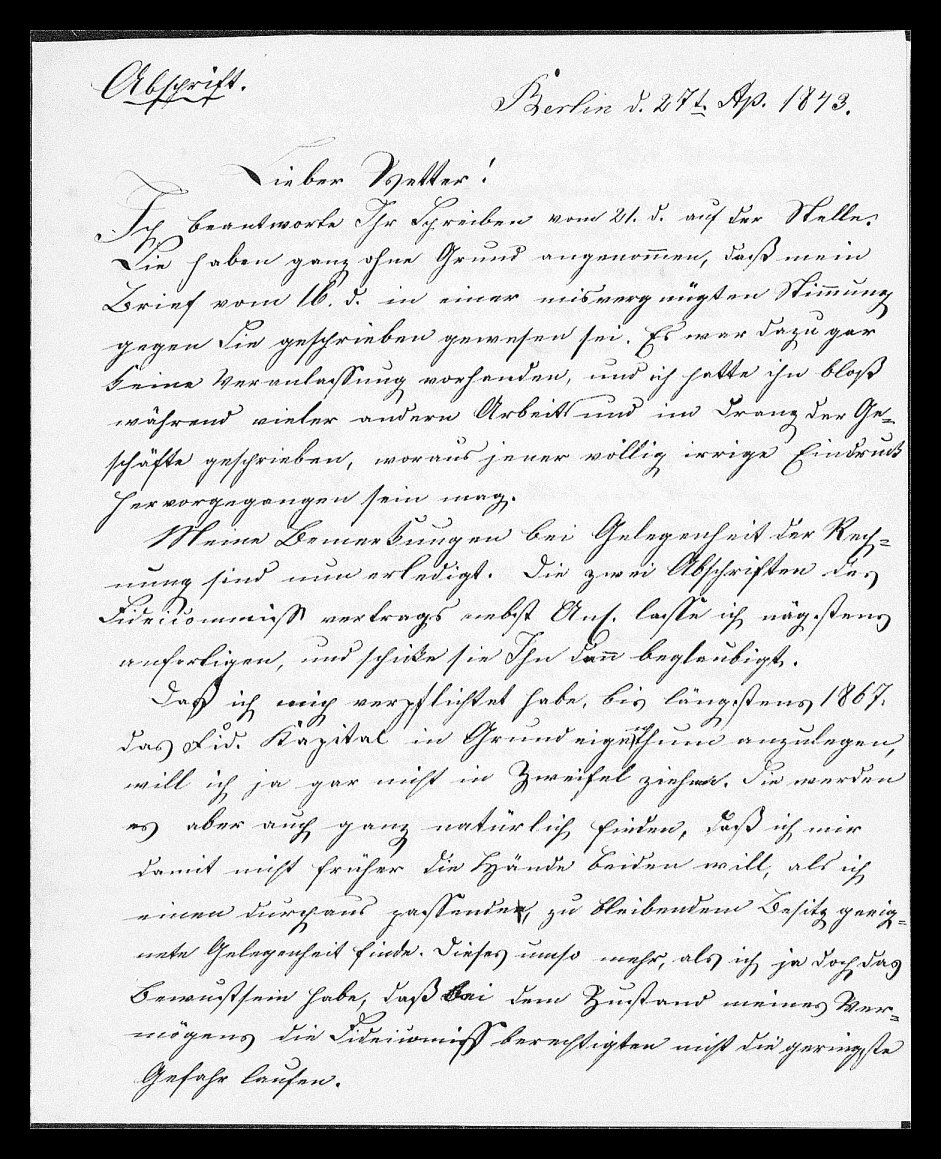 Abschrift.
Berlin d. 27t. Ap. 1843.
Lieber Vetter!
Ich beantworte Ihr Schreiben vom 21. d. auf der Stelle.
Sie haben ganz ohne Grund angenommen, daß mein
Brief vom 16. d. in einer misvergnügten Stimmung
gegen Sie geschrieben gewesen sei. Es war dazu gar
keine Veranlassung vorhanden, und ich hatte ihn bloß
während vieler andern Arbeit und im Drang der Ge=
schäfte geschrieben, woraus jener völlig irrige Eindruck
hervorgegangen sein mag.
Meine Bemerkungen bei Gelegenheit der Rech=
nung sind nun erledigt. Die zwei Abschriften des
Fideicommiss vertrags nebst Anf. lasse ich nächstens
anfertigen, und schicke sie Ihn dann beglaubigt.
Daß ich mich verpflichtet habe, bis längstens 1867.
das Fid. Kapital in Grundeigenthum anzulegen,
will ich ja gar nicht in Zweifel ziehen. Sie werden
es aber auch ganz natürlich finden, daß ich mir
damit nicht früher die Hände binden will, als ich
einen durchaus passenden, zu bleibendem Besitz geeig=
nete Gelegenheit finde. Dieses umso mehr, als ich ja doch das
Bewustsein habe, daß bei dem Zustand meines Ver=
mögens die Fideicomiss berechtigten nicht die geringste
Gefahr laufen.